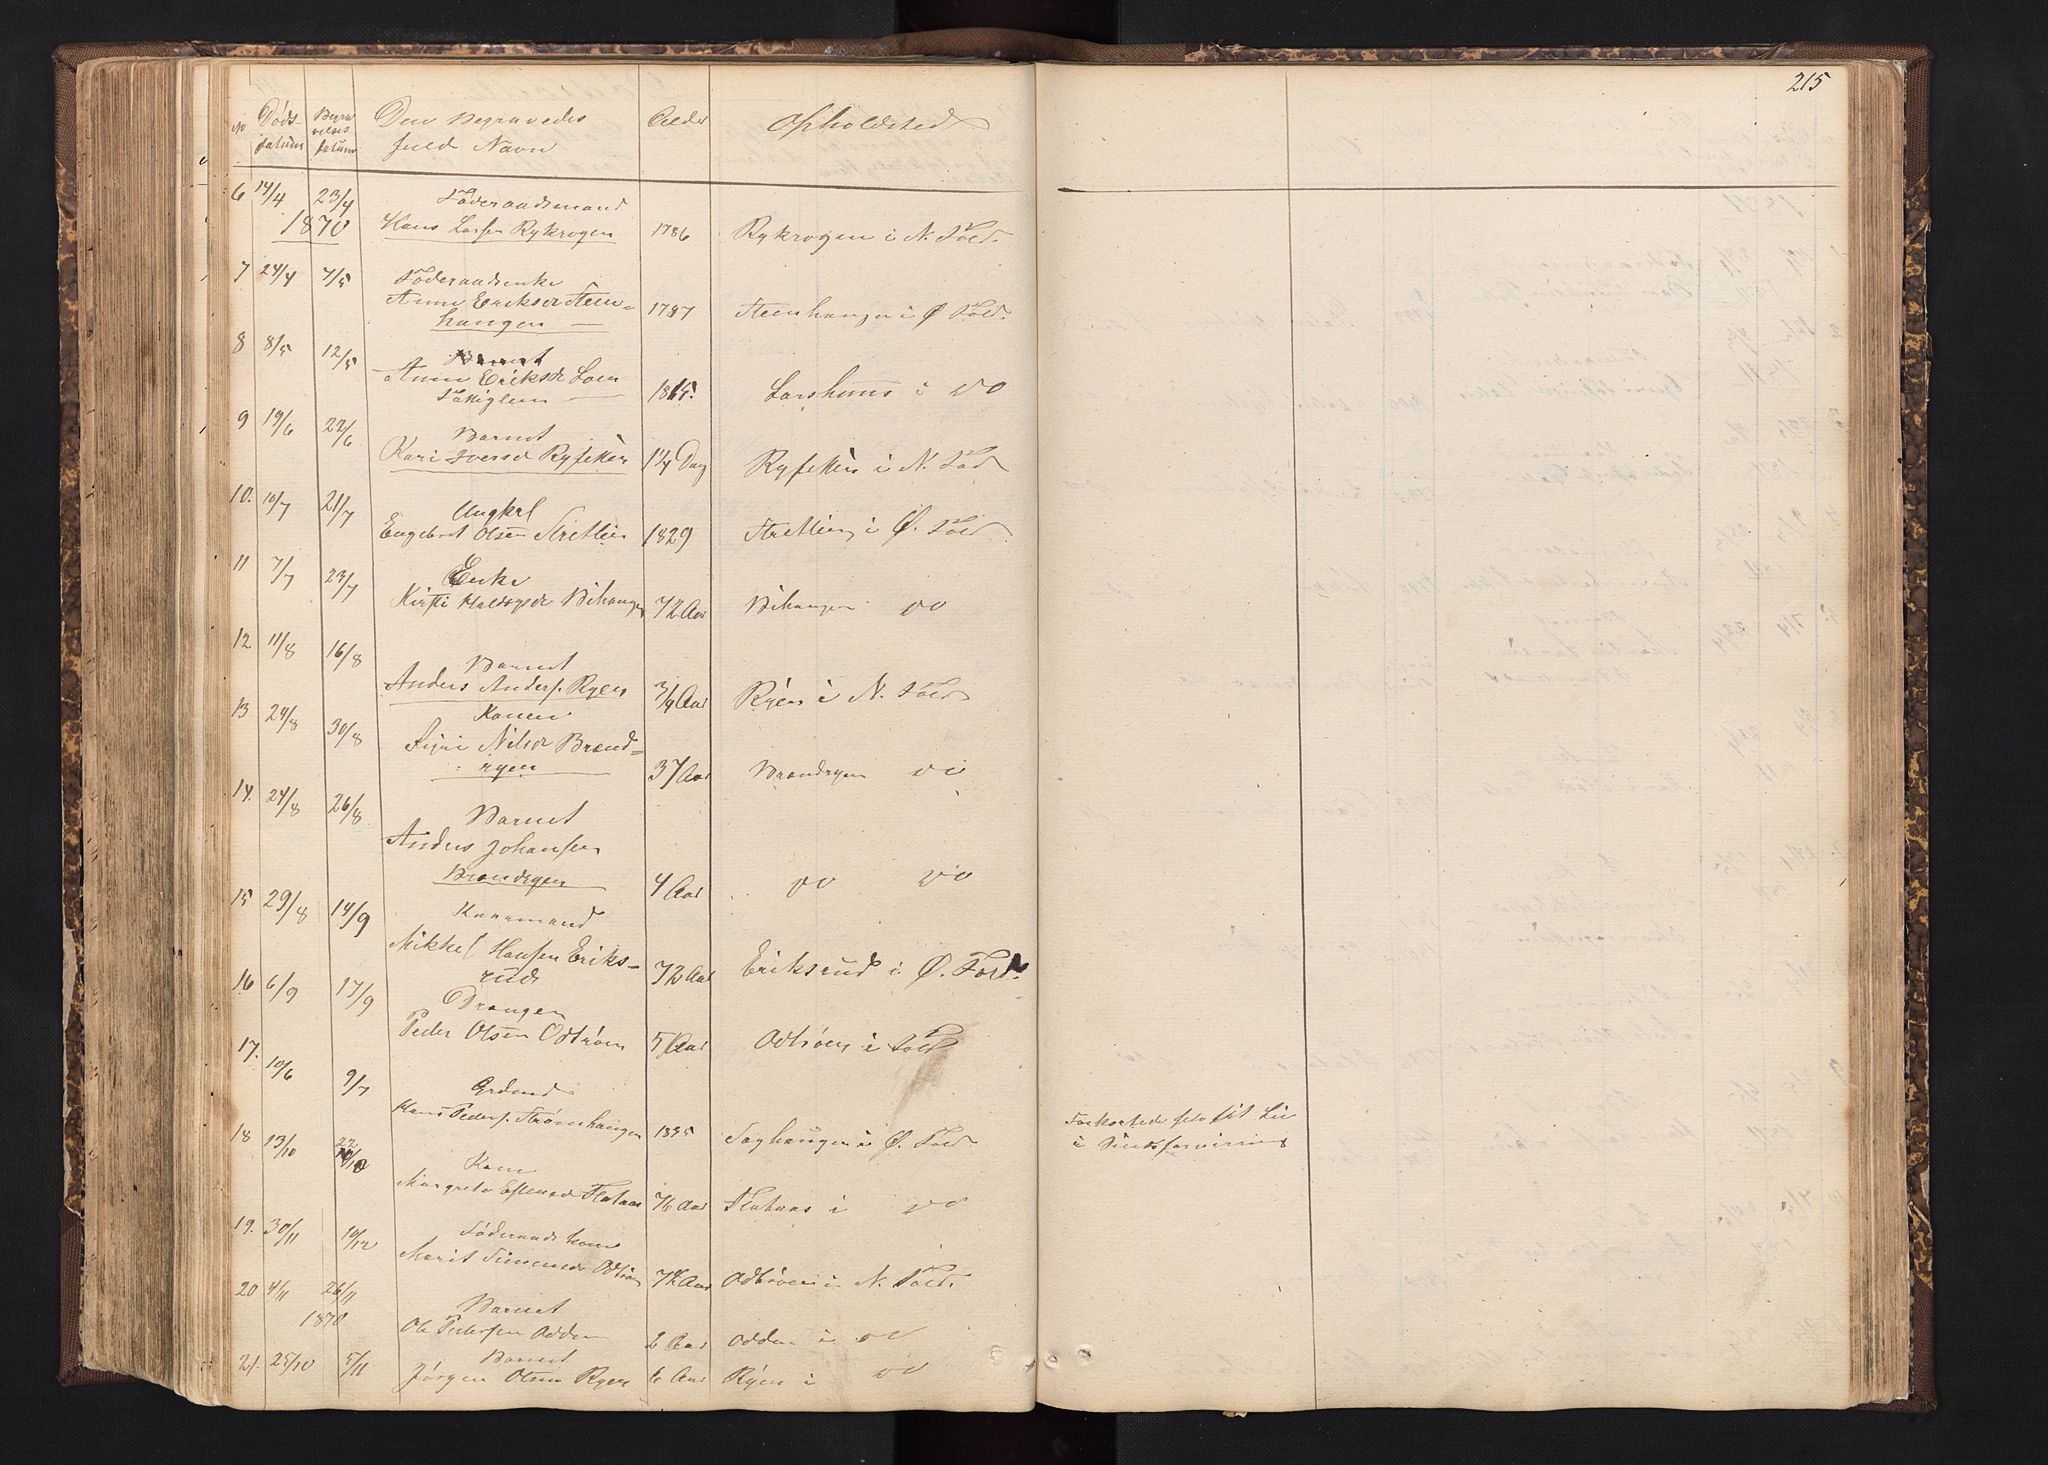 215
No Døds- datum Begravelses datum Den Begravedes fulde Navn Alder Opholdsted
6 14/4 23/4 Føderaadsmand
1870 Hans Larsen Rykrogen 1786 Rykrogen i N. Fold.
7 24/4 7/5 Føderaadsenke
Anne Eriksdr Steen=
hangen 1787 Steenhangen i Ø Fold.
8 8/5 12/5 Barnet
Anne Eriksdr Loen
1865. Larshuus i do
9 19/6 22/6 Barnet
Kari Iversd Ryfetten 1 1/4 Dag Ryfetten i N. Fold
10. 10/7 21/7 Ungkarl
Engebret Olsen Stretlien 1829 Stretlien i Ø. Fold
11 7/7 23/7 Enke
Kirsti Halvorsdr Bihangen 72 Aar Bihangen do
12 11/8 16/8 Barnet
Anders Anders. Ryen 3/4 Aar Ryen i N. Fold
13 24/8 30/8 Konen
Sigri Nilsdr Brænd=
ryen 37 Aar Brændryen do
14. 24/8 26/8 Barnet
Anders Johansen
Brændryen 4 Aar do do
15 29/8 14/9 Kaarmand
Mikkel Hansen Eriks-
rud 72 Aar Eriksrud i Ø. Fold.
16 6/9 17/9 Drengen
Peder Olsen Odtrøen 5 Aar Odtrøen i Fold
17. 10/6 9/7 Grdmd
Hans Peders. Strømhaugen 1835 Saghaugen i Ø. Fold. Forkortede selv sit Liv
i Sindsforvirring
18 13/10 22/10 Kone
Margrete Estensd Flataas 76 Aar Flataas i do
19. 30/11 10/12 Føderaadskone
Marit Simensdr Odtrøen 72 Aar Odtrøen i N. Fold.
20 4/11 26/11 Barnet
1870 Ole Pedersen Odden 2 Aar Odden i do
21. 25/10 5/11 Barnet
Jørgen Olsen Ryen 6 Aar Ryen i do